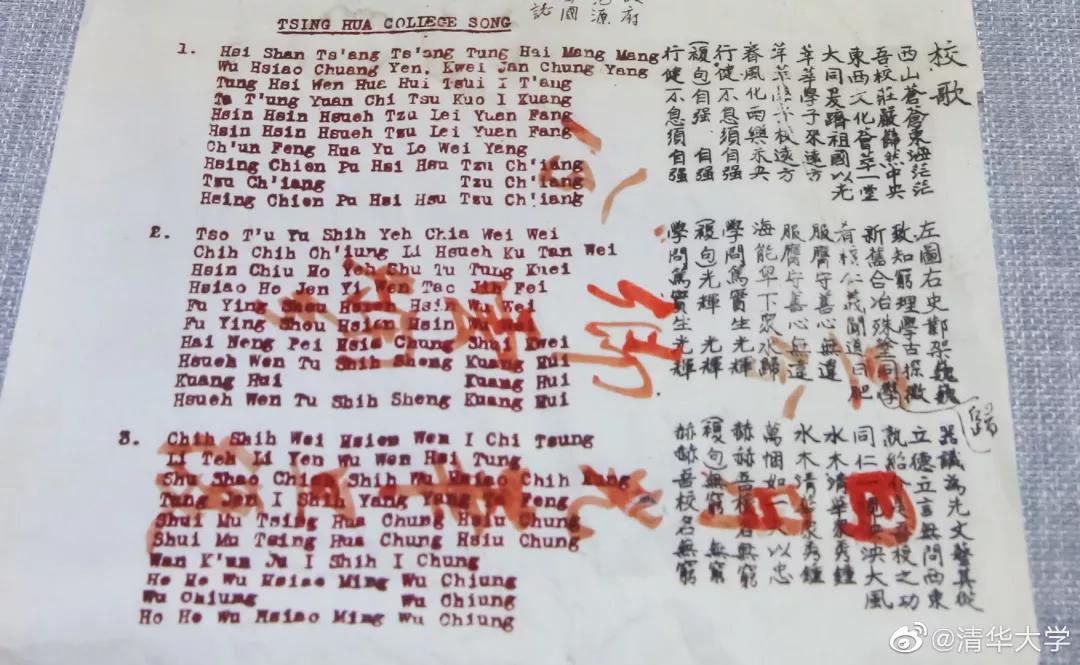 府
源
國
誌
TSING HUA COLLEGE SONG
1. Hsi Shan Ts'ang Ts'ang Tung Hai Mang Mang
Wu Hsiao Chuang Yen, Kwei Jan Chung Yang
Tung Hsi Wen Hua Hui Tsui I T'ang
Ta T'ung Yuan Chi Tsu Kuo I Kuang
Hsin Hsin Hsueh Tzu Lei Yuen Fang
Hsin Hsin Hsueh Tzu Lei Yuen Fang
Ch'un Feng Hua Yu Lo Wei Yang
Hsing Chien Pu Hsi Hsu Tzu Ch'iang
Tzu Ch'iang Tzu Ch'iang
Hsing Chien Pu Hsi Hsu Tzu Ch'iang
2. Tso T'u Yu Shih Yeh Chia Wei Wei
Chih Chih Ch'iung Li Hsueh Ku Tan Wei
Hsin Chiu Ho Yeh Shu Tu Tung Kuei
Hsiao Ho Jen Yi Wen Tao Jih Fei
Fu Ying Shou Hsien Hsin Wu Wei
Fu Ying Shou Hsien Hsin Wu Wei
Hai Neng Pei Hsia Chung Shui Kwei
Hsueh Wen Tu Shih Sheng Kuang Hui
Kuang Hui Kuang Hui
Hsueh Wen Tu Shih Sheng Kuang Hui
3. Chih Shih Wei Hsien Wen I Chi Tsung
Li Teh Li Yen Wu Wen Hsi Tung
Shu Shao Chieh Shih Wu Hsiao Chih Kung
Tung Jen I Shih Yang Yang Ta Feng
Shui Mu Tsing Hua Chung Hsiu Chung
Shui Mu Tsing Hua Chung Hsiu Chung
Wan K'un Ju I Shih I Chung
Ho Ho Wu Hsiao Ming Wu Chiung
Wu Chiung Wu Chiung
Ho Ho Wu Hsiao Ming Wu Chiung
校歌
西山蒼蒼東海茫茫
吾校莊嚴巋然中央
東西文化薈萃一堂
大同爰躋祖國以光
莘莘學子來遠方
莘莘學子來遠方
春風化雨樂未央
行健不息須自强
複句自强 自强
行健不息須自强
左圖右史鄴架巍巍
致知窮理學古探微
新舊合冶殊塗同學
歸
肴核仁義聞道日肥
服膺守善心無違
服膺守善心無違
海能卑下衆水歸
學問篤實生光輝
複句光輝 光輝
學問篤實生光輝
器識為先文藝其從
立德立言無問西東
孰紹介 吾校之功
同仁一視泱泱大風
水木清華衆秀鍾
水木清華衆秀鍾
萬悃如一矢以忠
赫赫吾校名無窮
複句無窮 無窮
赫赫吾校名無窮
@清华大学